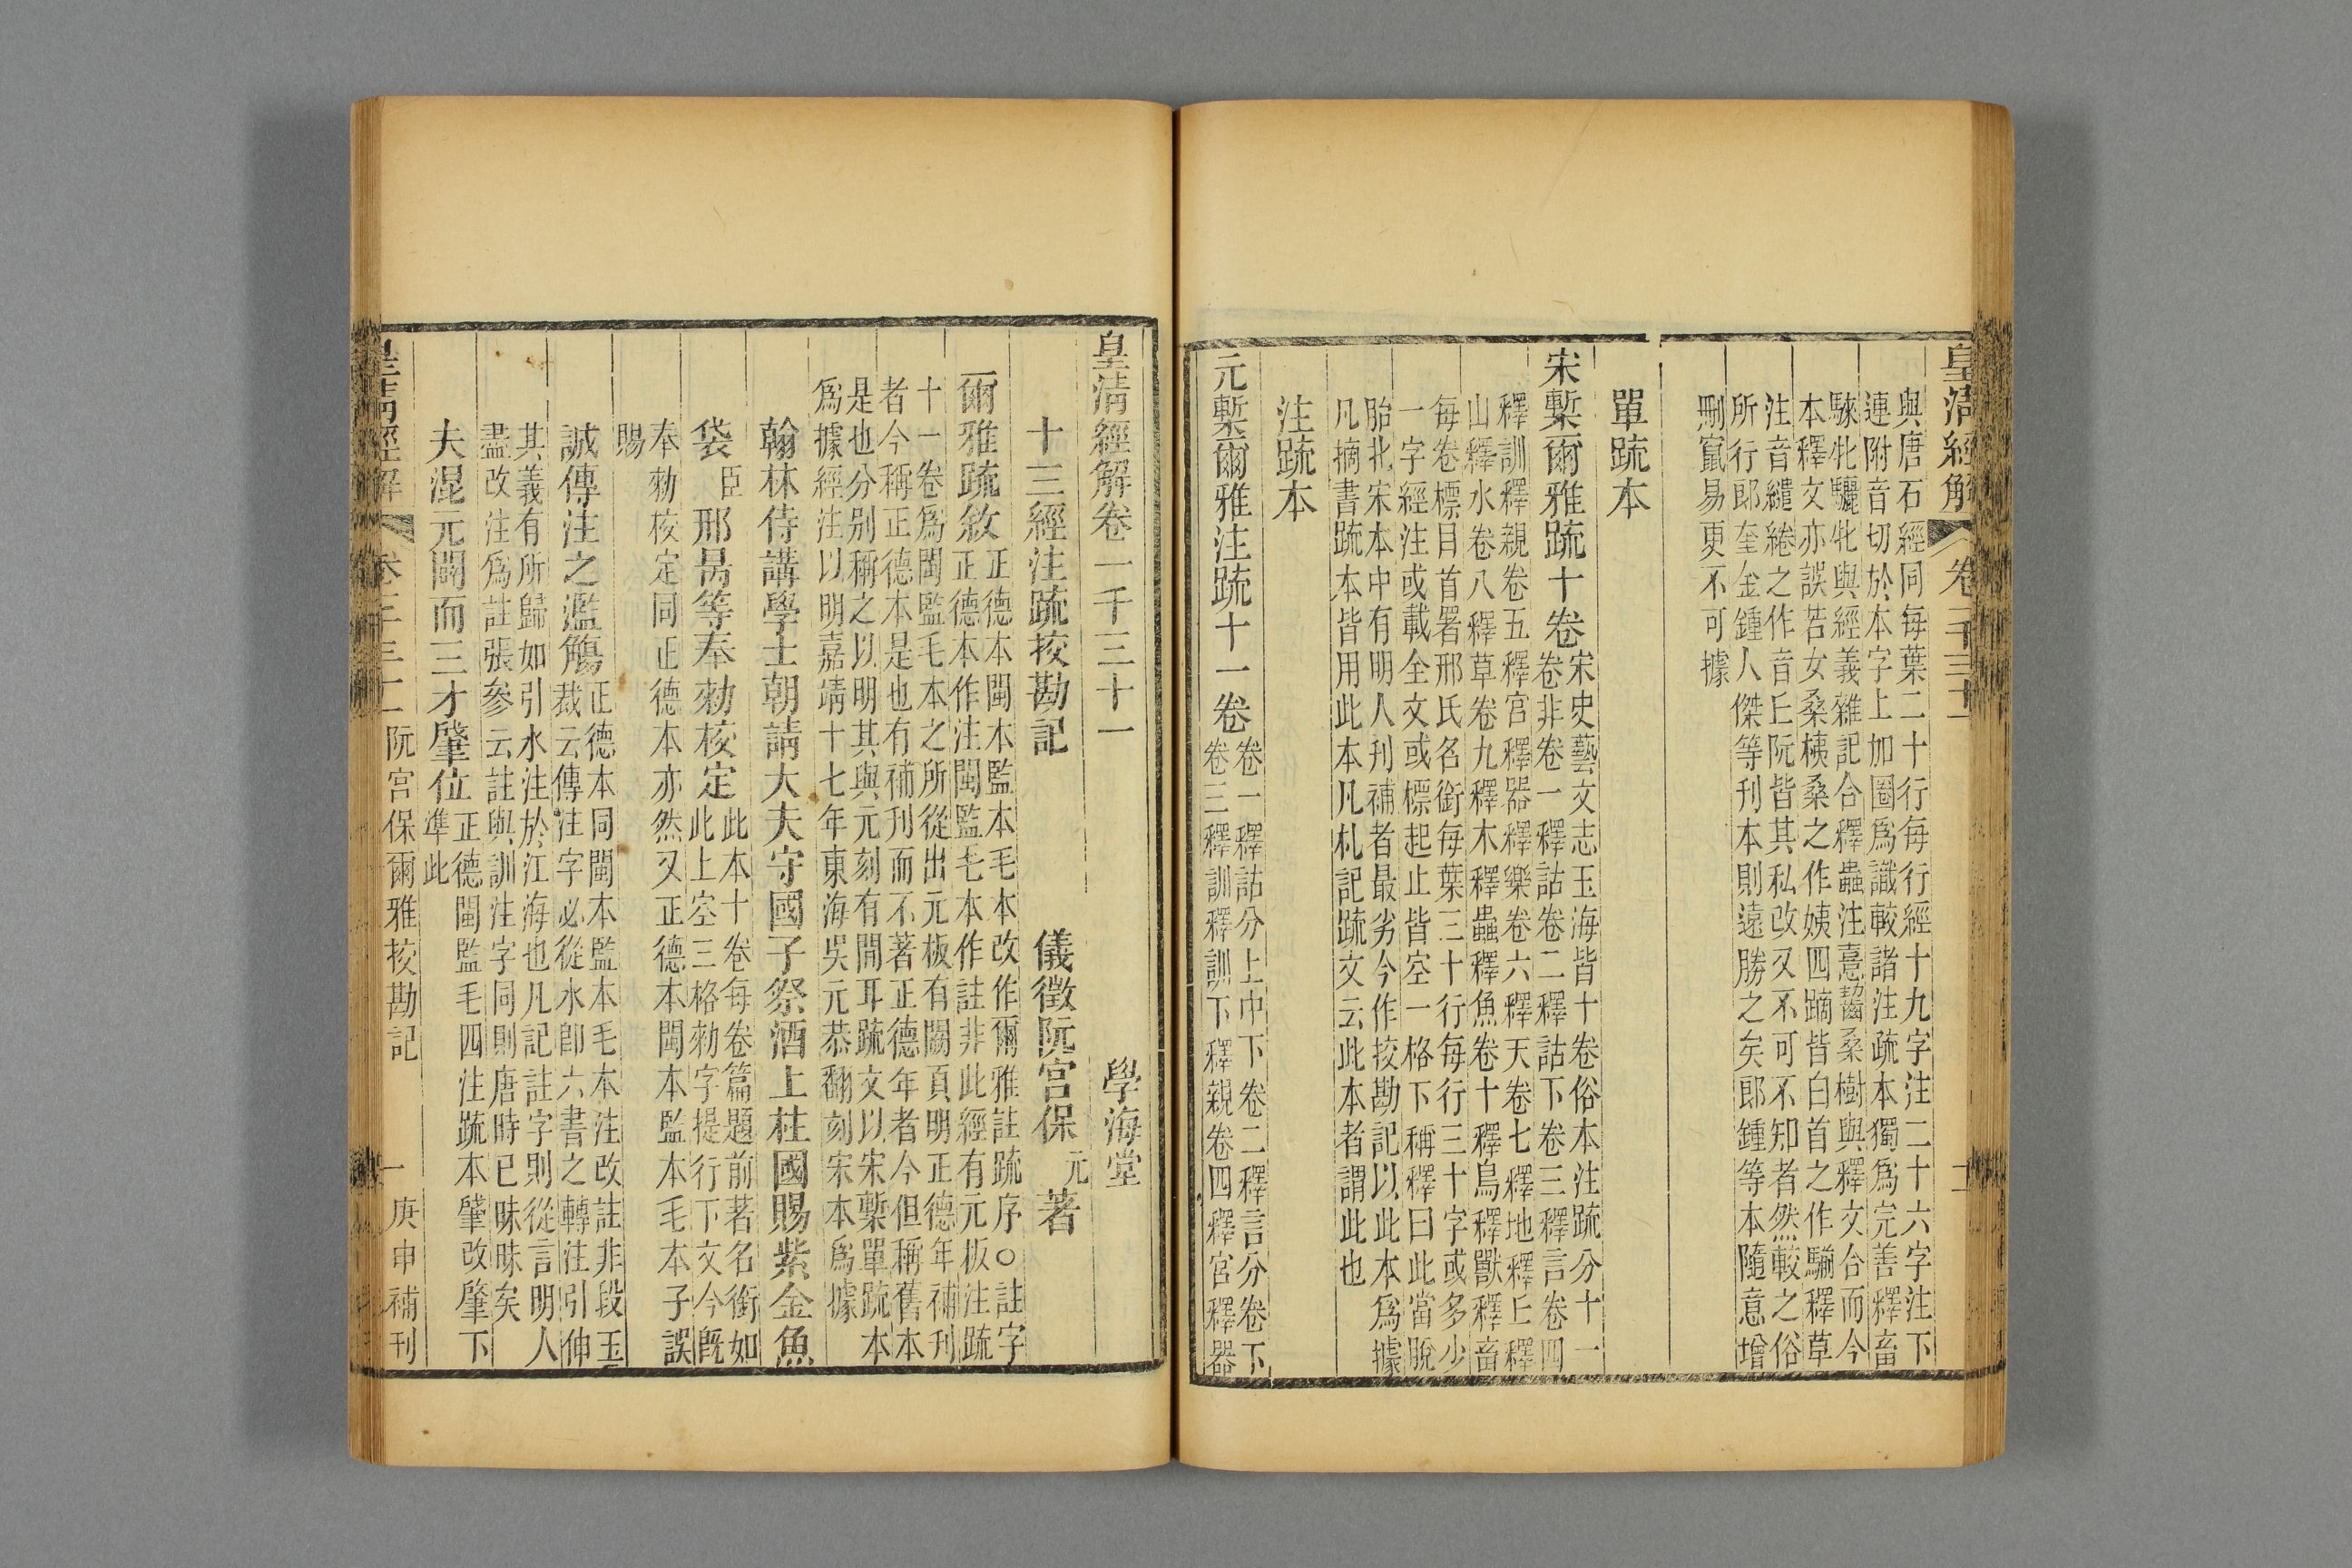 皇清經解 卷一千三十一 二
與唐石經同每葉二十行每行經十九字注二十六字注下
連附音切於本字上加圈爲識較諸注疏本獨爲完善釋畜
騋牝驪牝與經義雜記合釋蟲注憙齧桑樹與釋文合而今
本釋文亦誤若女桑桋桑之作姨四蹢皆白首之作騚釋草
注音繾綣之作音丘阮皆其私改又不可不知者然較之俗
所行郎奎金鍾人傑等刊本則遠勝之矣郎鍾等本隨意增
刪竄易更不可據
單疏本
宋槧爾雅疏十卷
宋史藝文志玉海皆十卷俗本注疏分十一
卷非卷一釋詁卷二釋詁下卷三釋言卷四
釋訓釋親卷五釋宮釋器釋樂卷六釋天卷七釋地釋丘釋
山釋水卷八釋草卷九釋木釋蟲釋魚卷十釋鳥釋獸釋畜
每卷標目首署邢氏名銜每葉三十行每行三十字或多少
一字經注或載全文或標起止皆空一格下稱釋曰此當脫
胎北宋本中有明人刊補者最劣今作挍勘記以此本爲據
凡摘書疏本皆用此本凡札記疏文云此本者謂此也
注疏本
元槧爾雅注疏十一卷
卷一釋詁分上中下卷二釋言分卷下
卷三釋訓釋訓下釋親卷四釋宮釋器
皇清經解卷一千三十一
學海堂
十三經注疏挍勘記
儀徵阮宮保元著
爾雅疏敘
正德本閩本監本毛本改作爾雅註疏序○註字
正德本作注閩監毛本作註非此經有元板注疏
十一卷爲閩監毛本之所從出元板有闕頁明正德年補刊
者今稱正德本是也有補刊而不著正德年者今但稱舊本
是也分别稱之以明其與元刻有間耳疏文以宋槧單疏本
爲據經注以明嘉靖十七年東海吳元恭翻刻宋本爲據
翰林侍講學士朝請大夫守國子祭酒上柱國賜紫金魚
袋臣邢昺等奉勑校定
此本十卷每卷篇題前著名銜如
此上空三格勑字提行下文今旣
奉勑校定同正德本亦然又正德本閩本監本毛本子誤
賜
誠傳注之濫觴
正德本同閩本監本毛本注改註非段玉
裁云傳注字必從水卽六書之轉注引伸
其義有所歸如引水注於江海也凡記註字則從言明人
盡改注爲註張參云註與訓注字同則唐時已昧昧矣
夫混元闢而三才肇位
正德閩監毛四注疏本肈改肇下
準此
皇清經解 卷一千三十一 阮宮保爾雅挍勘記 一 庚申補刊